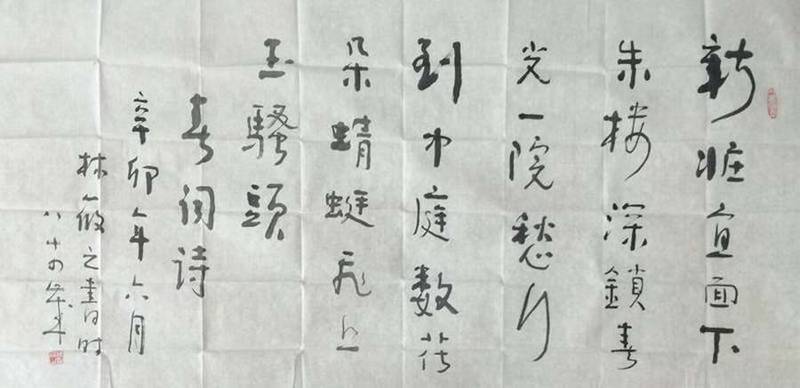 新粧宜面下
朱楼深鎖春
光一院愁行
到中庭数花
朵蜻蜓飛上
玉騷頭
春词诗
辛卯年六月
林筱之書时
八十四歲